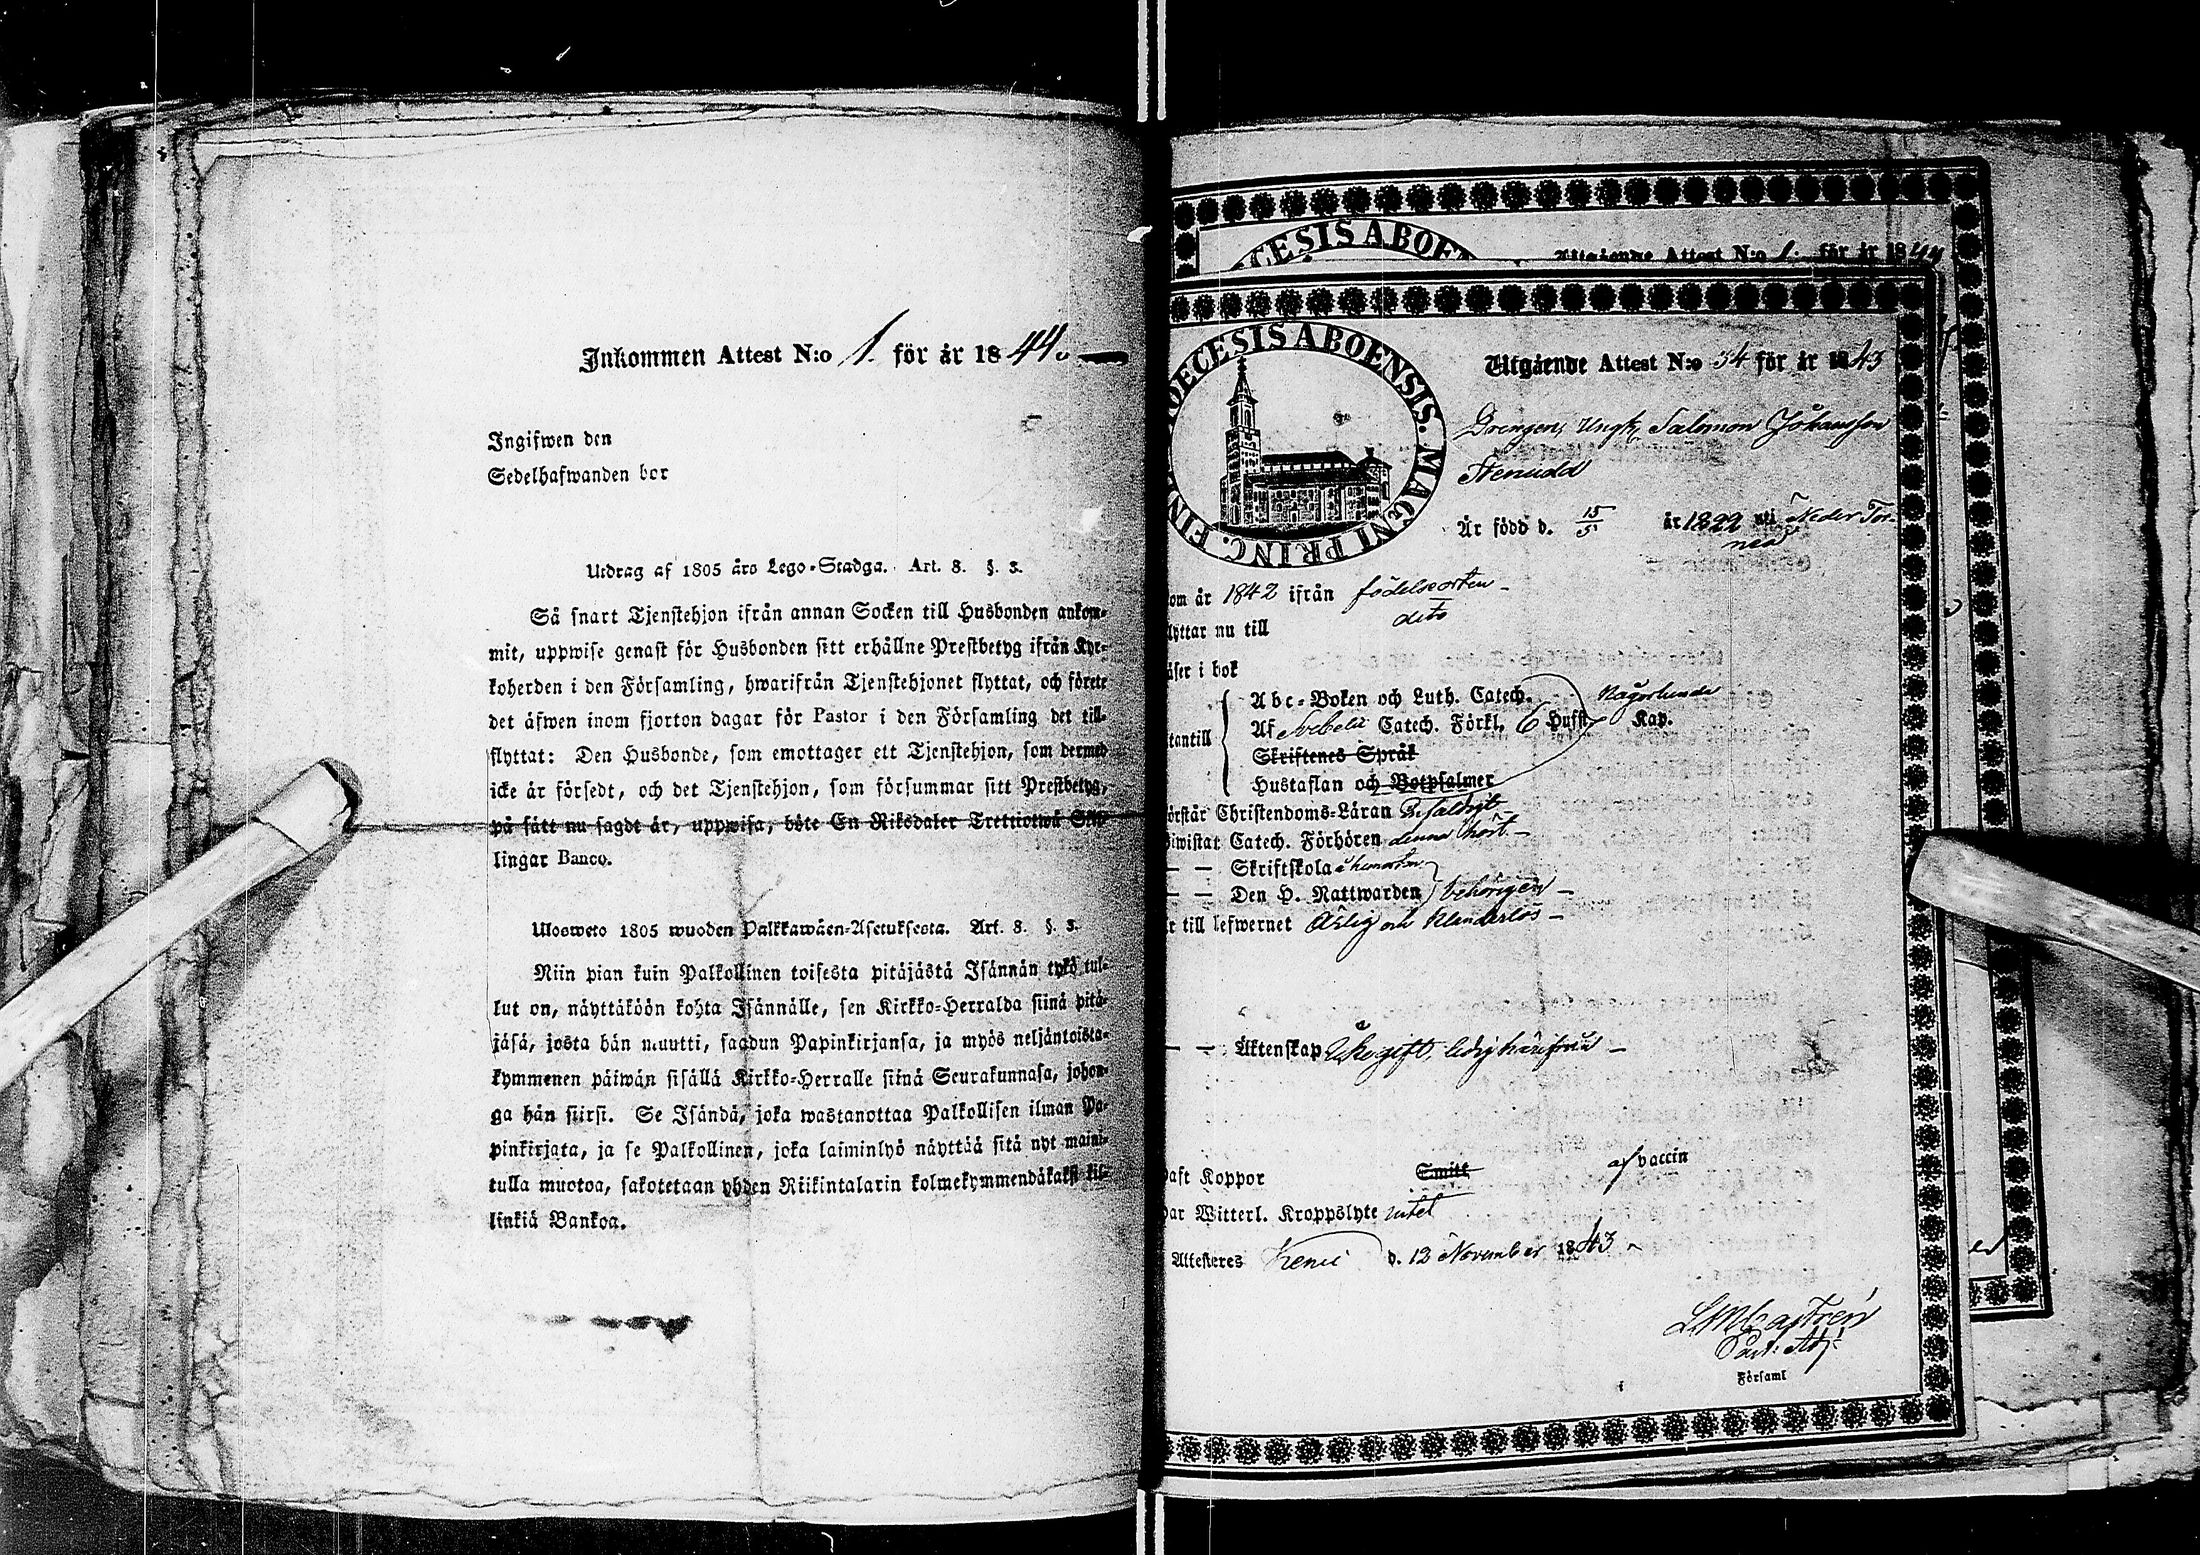 Inkommen Attest N:o 1. för år 1844.
Ingifwen den
Sedelhafwanden bor
Utdrag af 1805 års Lego-Stadga. Art. 8. §. 3.
Så snart Tjenstehjon ifrån annan Socken till Husbonden ankom-
mit, uppwise genast för Husbonden sitt erhållne Prestbetyg ifrån Kyr-
koherden i den Församling, hwarifrån Tjenstehjonet flyttat, och förete
det äfwen inom fjorton dagar för Pastor i den Församling det till-
flyttat: Den Husbonde, som emottager ett Tjenstehjon, som dermed
icke är försedt, och det Tjenstehjon, som försummar sitt Prestbetyg,
på sätt nu sagdt är, uppwisa, böte En Riksdaler Trettiotwå Skil-
lingar Banco.
Ulosweto 1805 wuoden Palkkawäen-Asetuksesta. Art. 8. §. 3.
Niin pian kuin Palkollinen toisesta pitäjästä Isännän tykö tul-
lut on, näyttäköön kohta Isännälle, sen Kirkko-Herralda siinä pitä-
jäsä, josta hän muutti, saadun Papinkirjansa, ja myös neljäntoista-
kymmenen päiwän sisällä Kirkko-Herralle siinä Seurakunnasa, johon-
ga hän siirsi. Se Isändä, joka wastanottaa Palkollisen ilman Pa-
pinkirjata, ja se Palkollinen, joka laiminlyö näyttää sitä nyt maini-
tulla muotoa, sakotetaan yhden Riikintalarin kolmekymmendäkaksi kil-
linkiä Bankoa.
CESIS ABOE
Utgående Attest N:o 1. för år 1844
OECESIS ABOENSIS. MAGNI PRINC. FIN
Utgående Attest N:o 34 för år 1843
Drengen, Ungk. Salomon Johansson
Stenudd
Är född d. 15/5 år 1822 uti Neder Tor-
neå
om år 1842 ifrån födelseorten
lyttar nu till dito
äser i bok
Abc-Boken och Luth. Catech. Någorlunda
tantill Af Svebelii Catech. Förkl. 6 Hufst. Kap.
Skriftenes Språk
Hustaflan och Botpsalmer
örstår Christendoms-Läran
iwistat Catech. Förhören denna höst
— — Skriftskola
— — Den H. Nattwarden behörigen
r till lefwernet Ärlig och klanderlös
— — Äktenskap Ogift, ledig härifrån
aft Koppor Smitt af vaccin
ar Witterl. Kroppslyte intet
Attesteres Kemi d. 12 November 1843
LMCastrén
Past: Adj:
Församl